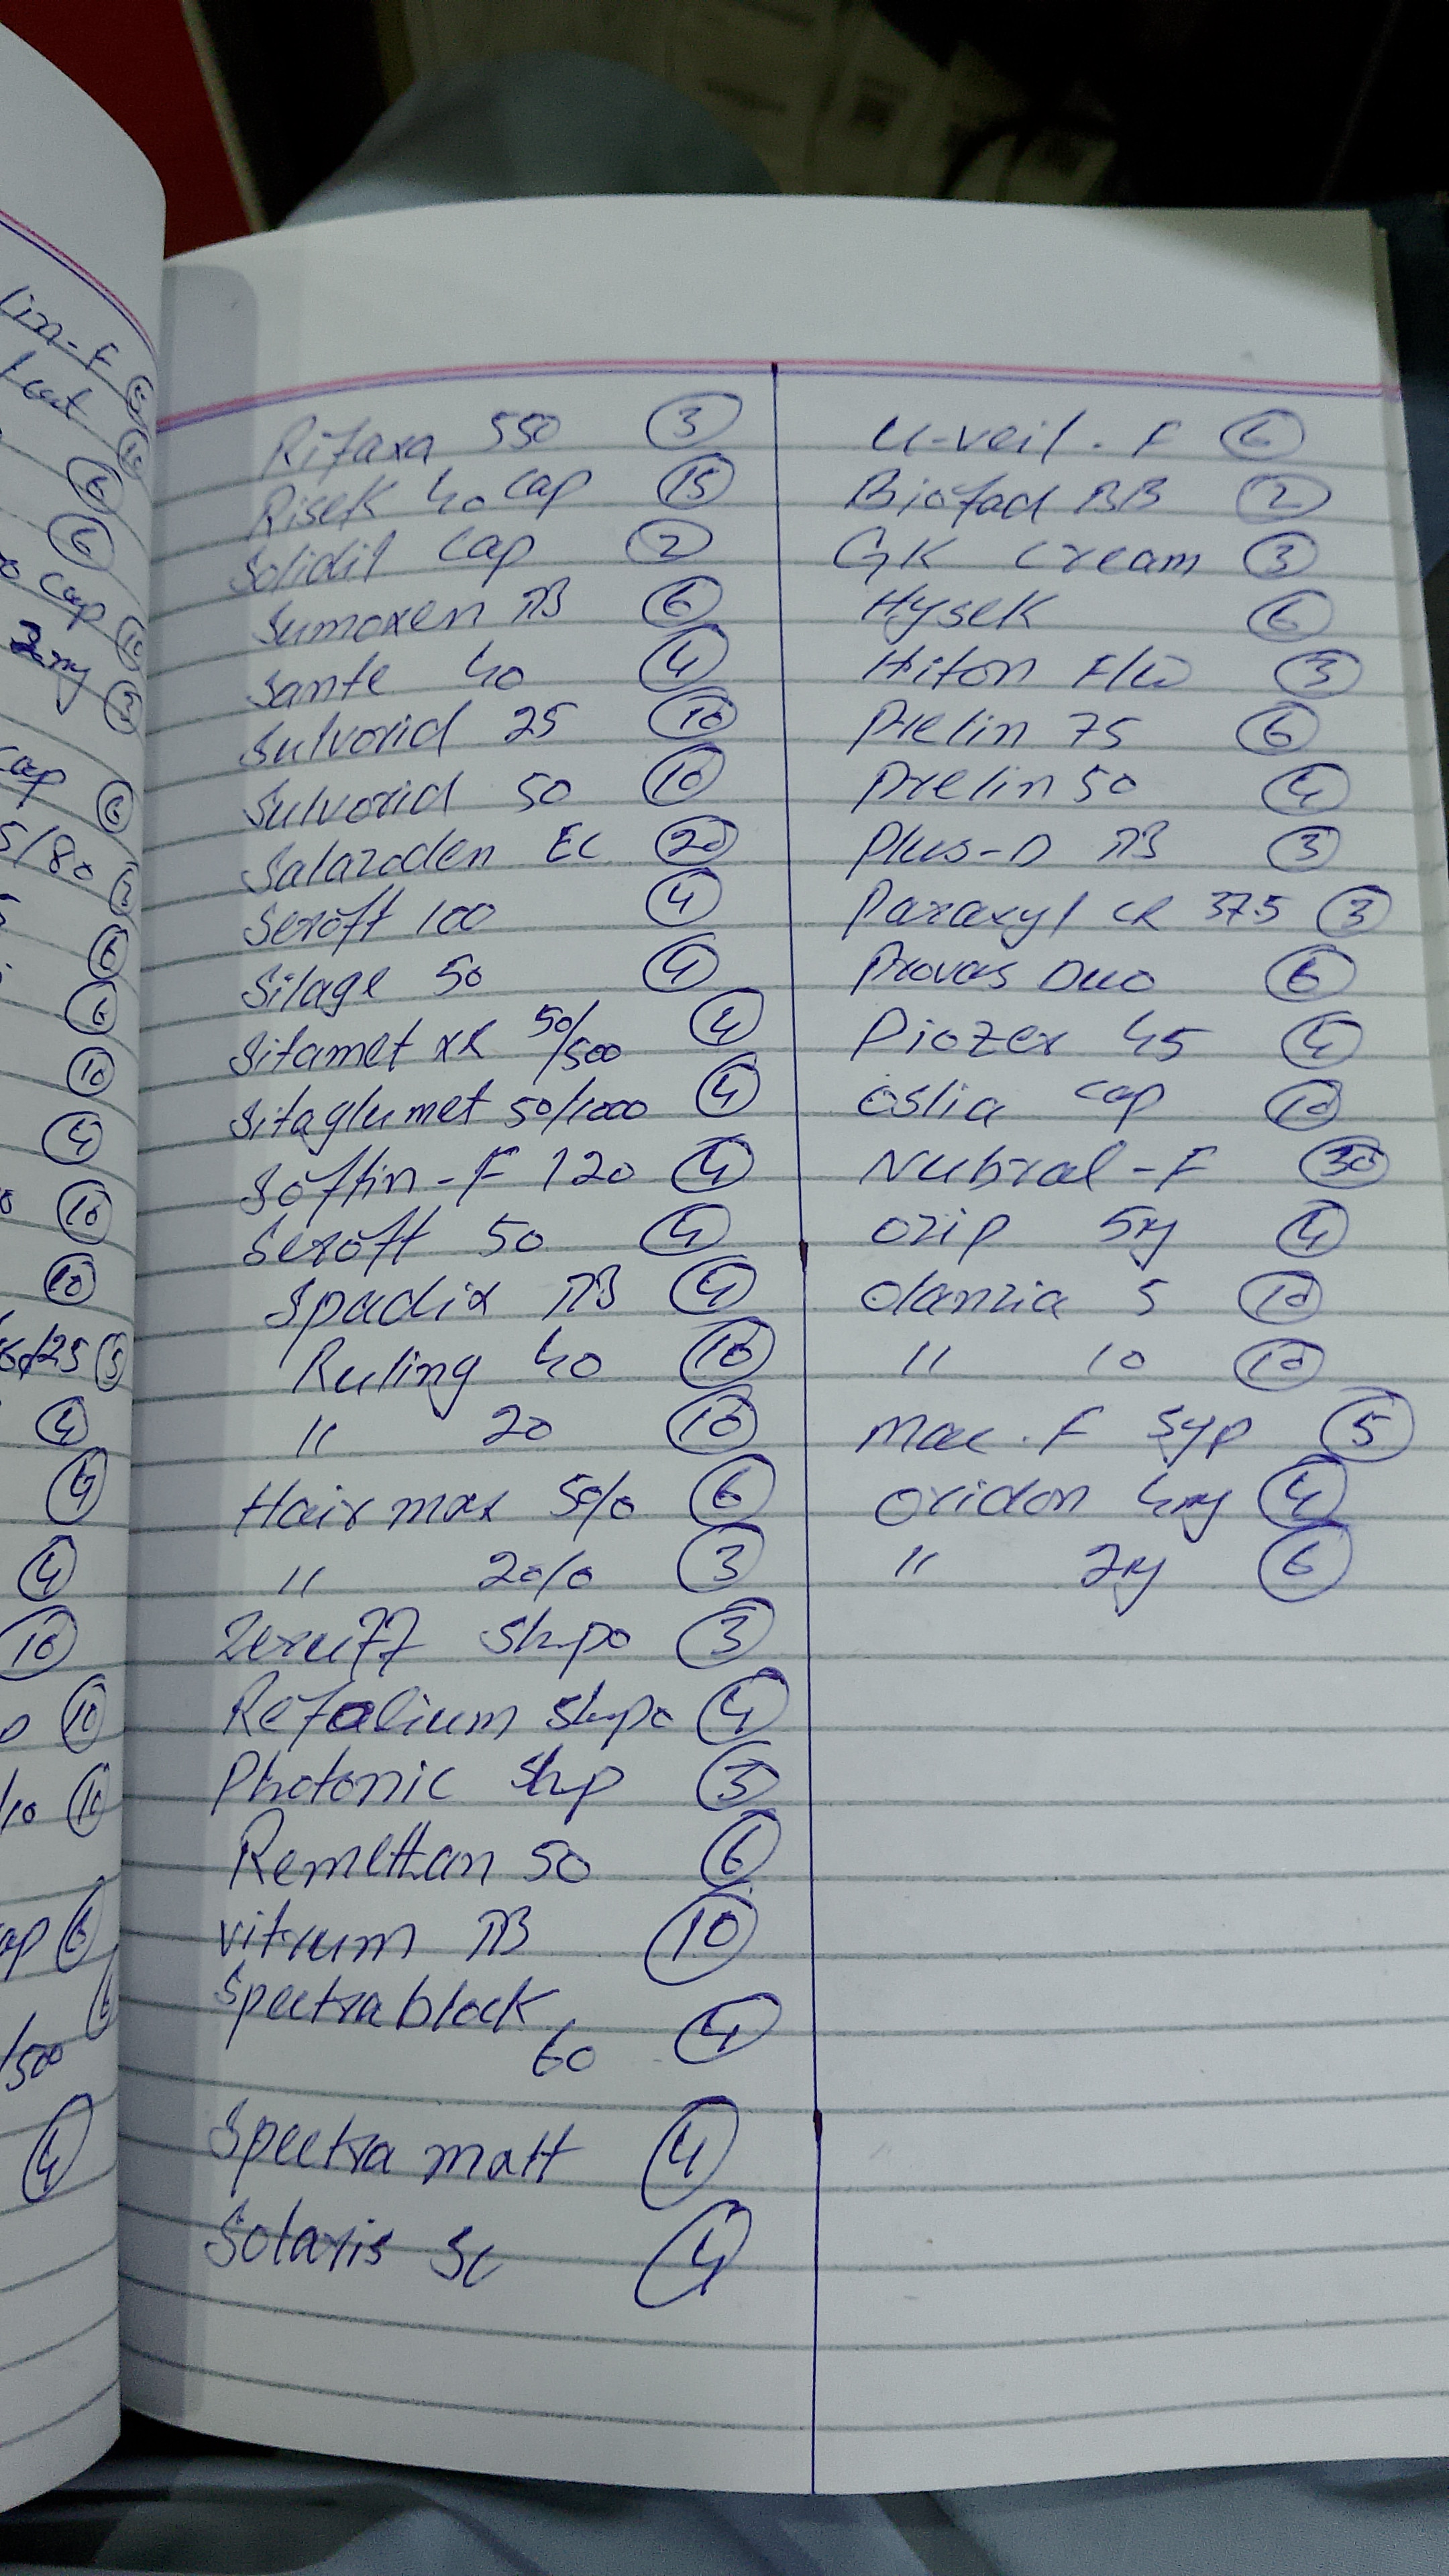 lin-F
10
6
6
cap 10
3
cap 6
5/80
6
6
10
4
10
10
/25 5
4
4
4
10
10
/10 10
6
/500
4
Rifaxa 550 3
Risek 40 cap 15
Solidil cap 2
Sumoxen TB 6
Sante 40 4
Sulvorid 25 10
Sulvorid 50 10
Salazoden EC 20
Seroft 100 4
Silage 50 4
Sitamet XR 50/500 4
Sitaglumet 50/1000 4
Softin-F 120 4
Seroft 50 4
Spadix TB 4
Ruling 40 10
" 20 10
Hair max 5% 6
" 2% 3
Shpo 3
Refalium Shpo 4
Photonic Shp 3
Remethan 50 6
vitrum TB 10
Spectrablock
60 4
Spectra matt 4
Solaris SC 4
U-veil-F 6
Biofad BB 2
GK cream 3
Hysek 6
Hiton F/W 3
Prelin 75 6
Prelin 50 4
Plus-D TB 3
Paraxyl CR 37.5 3
Provas Duo 6
Piozer 45 4
oslia cap 10
Nubral-F 30
ozip 5mg 4
olanzia 5 10
" 10 10
Mac.F Syp 5
oridon 4mg 4
" 2mg 6